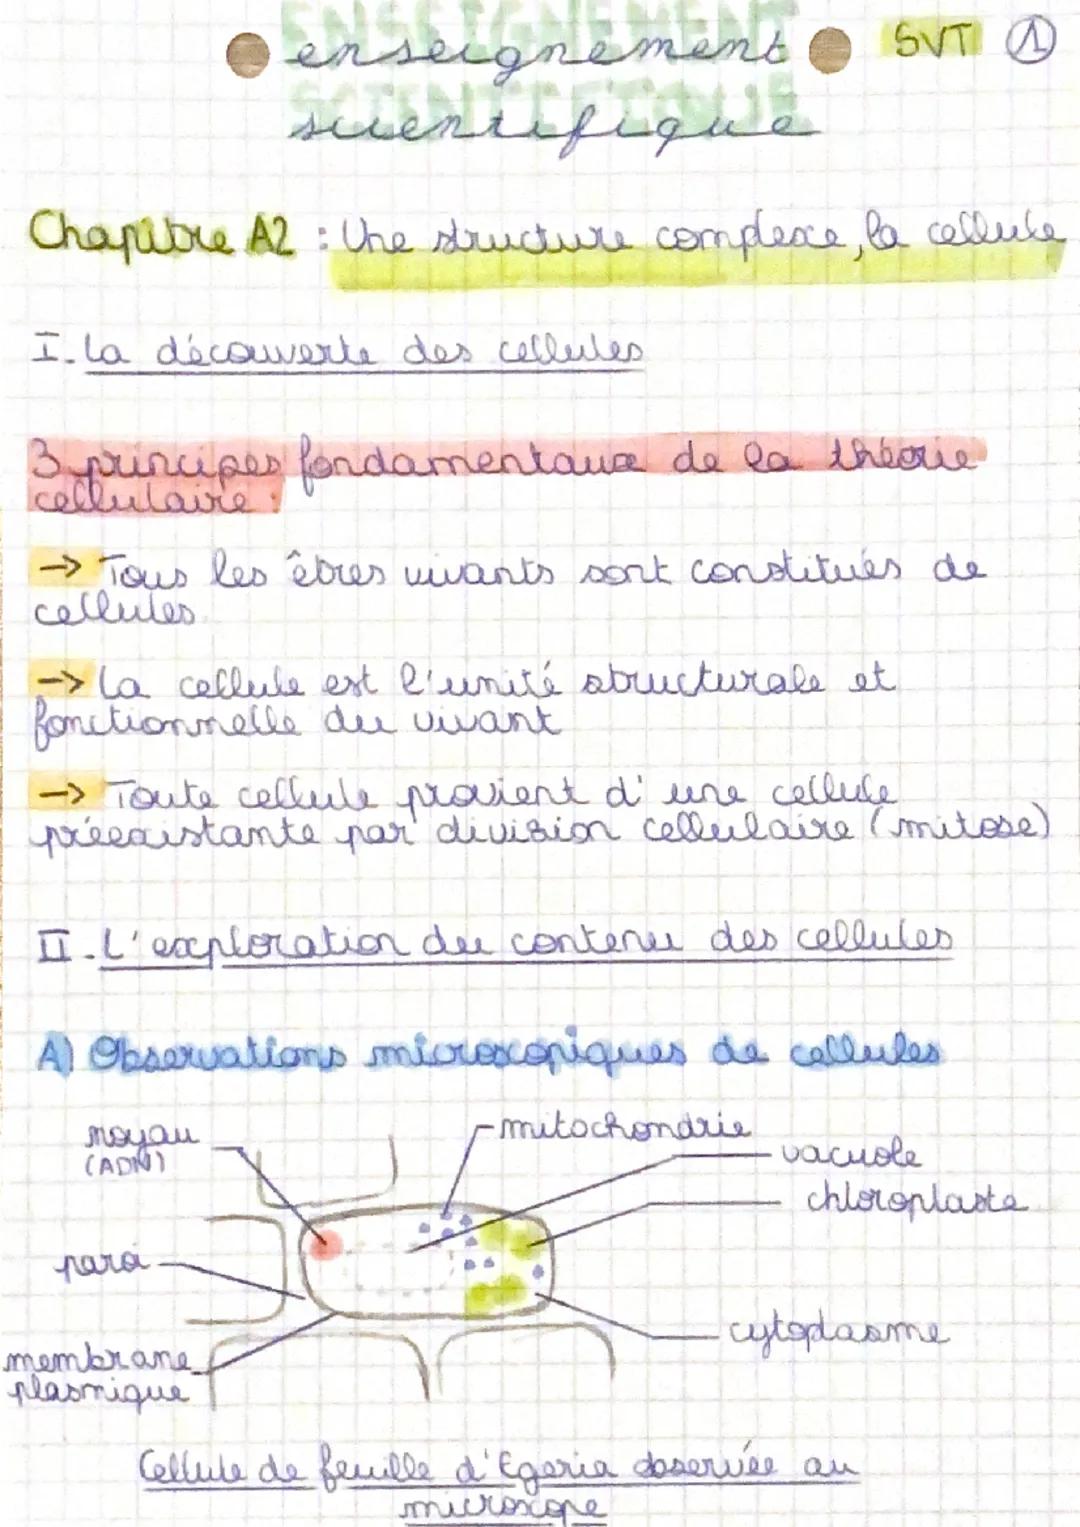 ENSEIGNEMENT
enseignement
SVT 1
SCIENTIFIQUE
scientifique
Chapitre A2 : Une structure complexe, la cellule
I. La découverte des cellules
3 principes fondamentaux de la théorie
cellulaire :
-> Tous les êtres vivants sont constitués de
cellules
-> La cellule est l'unité structurale et
fonctionnelle du vivant
-> Toute cellule provient d'une cellule
préexistante par division cellulaire (mitose)
II. L'exploration du contenu des cellules
A) Observations microscopiques de cellules
noyau
(ADN)
mitochondrie
vacuole
chloroplaste
paroi
cytoplasme
membrane
plasmique
Cellule de feuille d'Egeria observée au
microscope